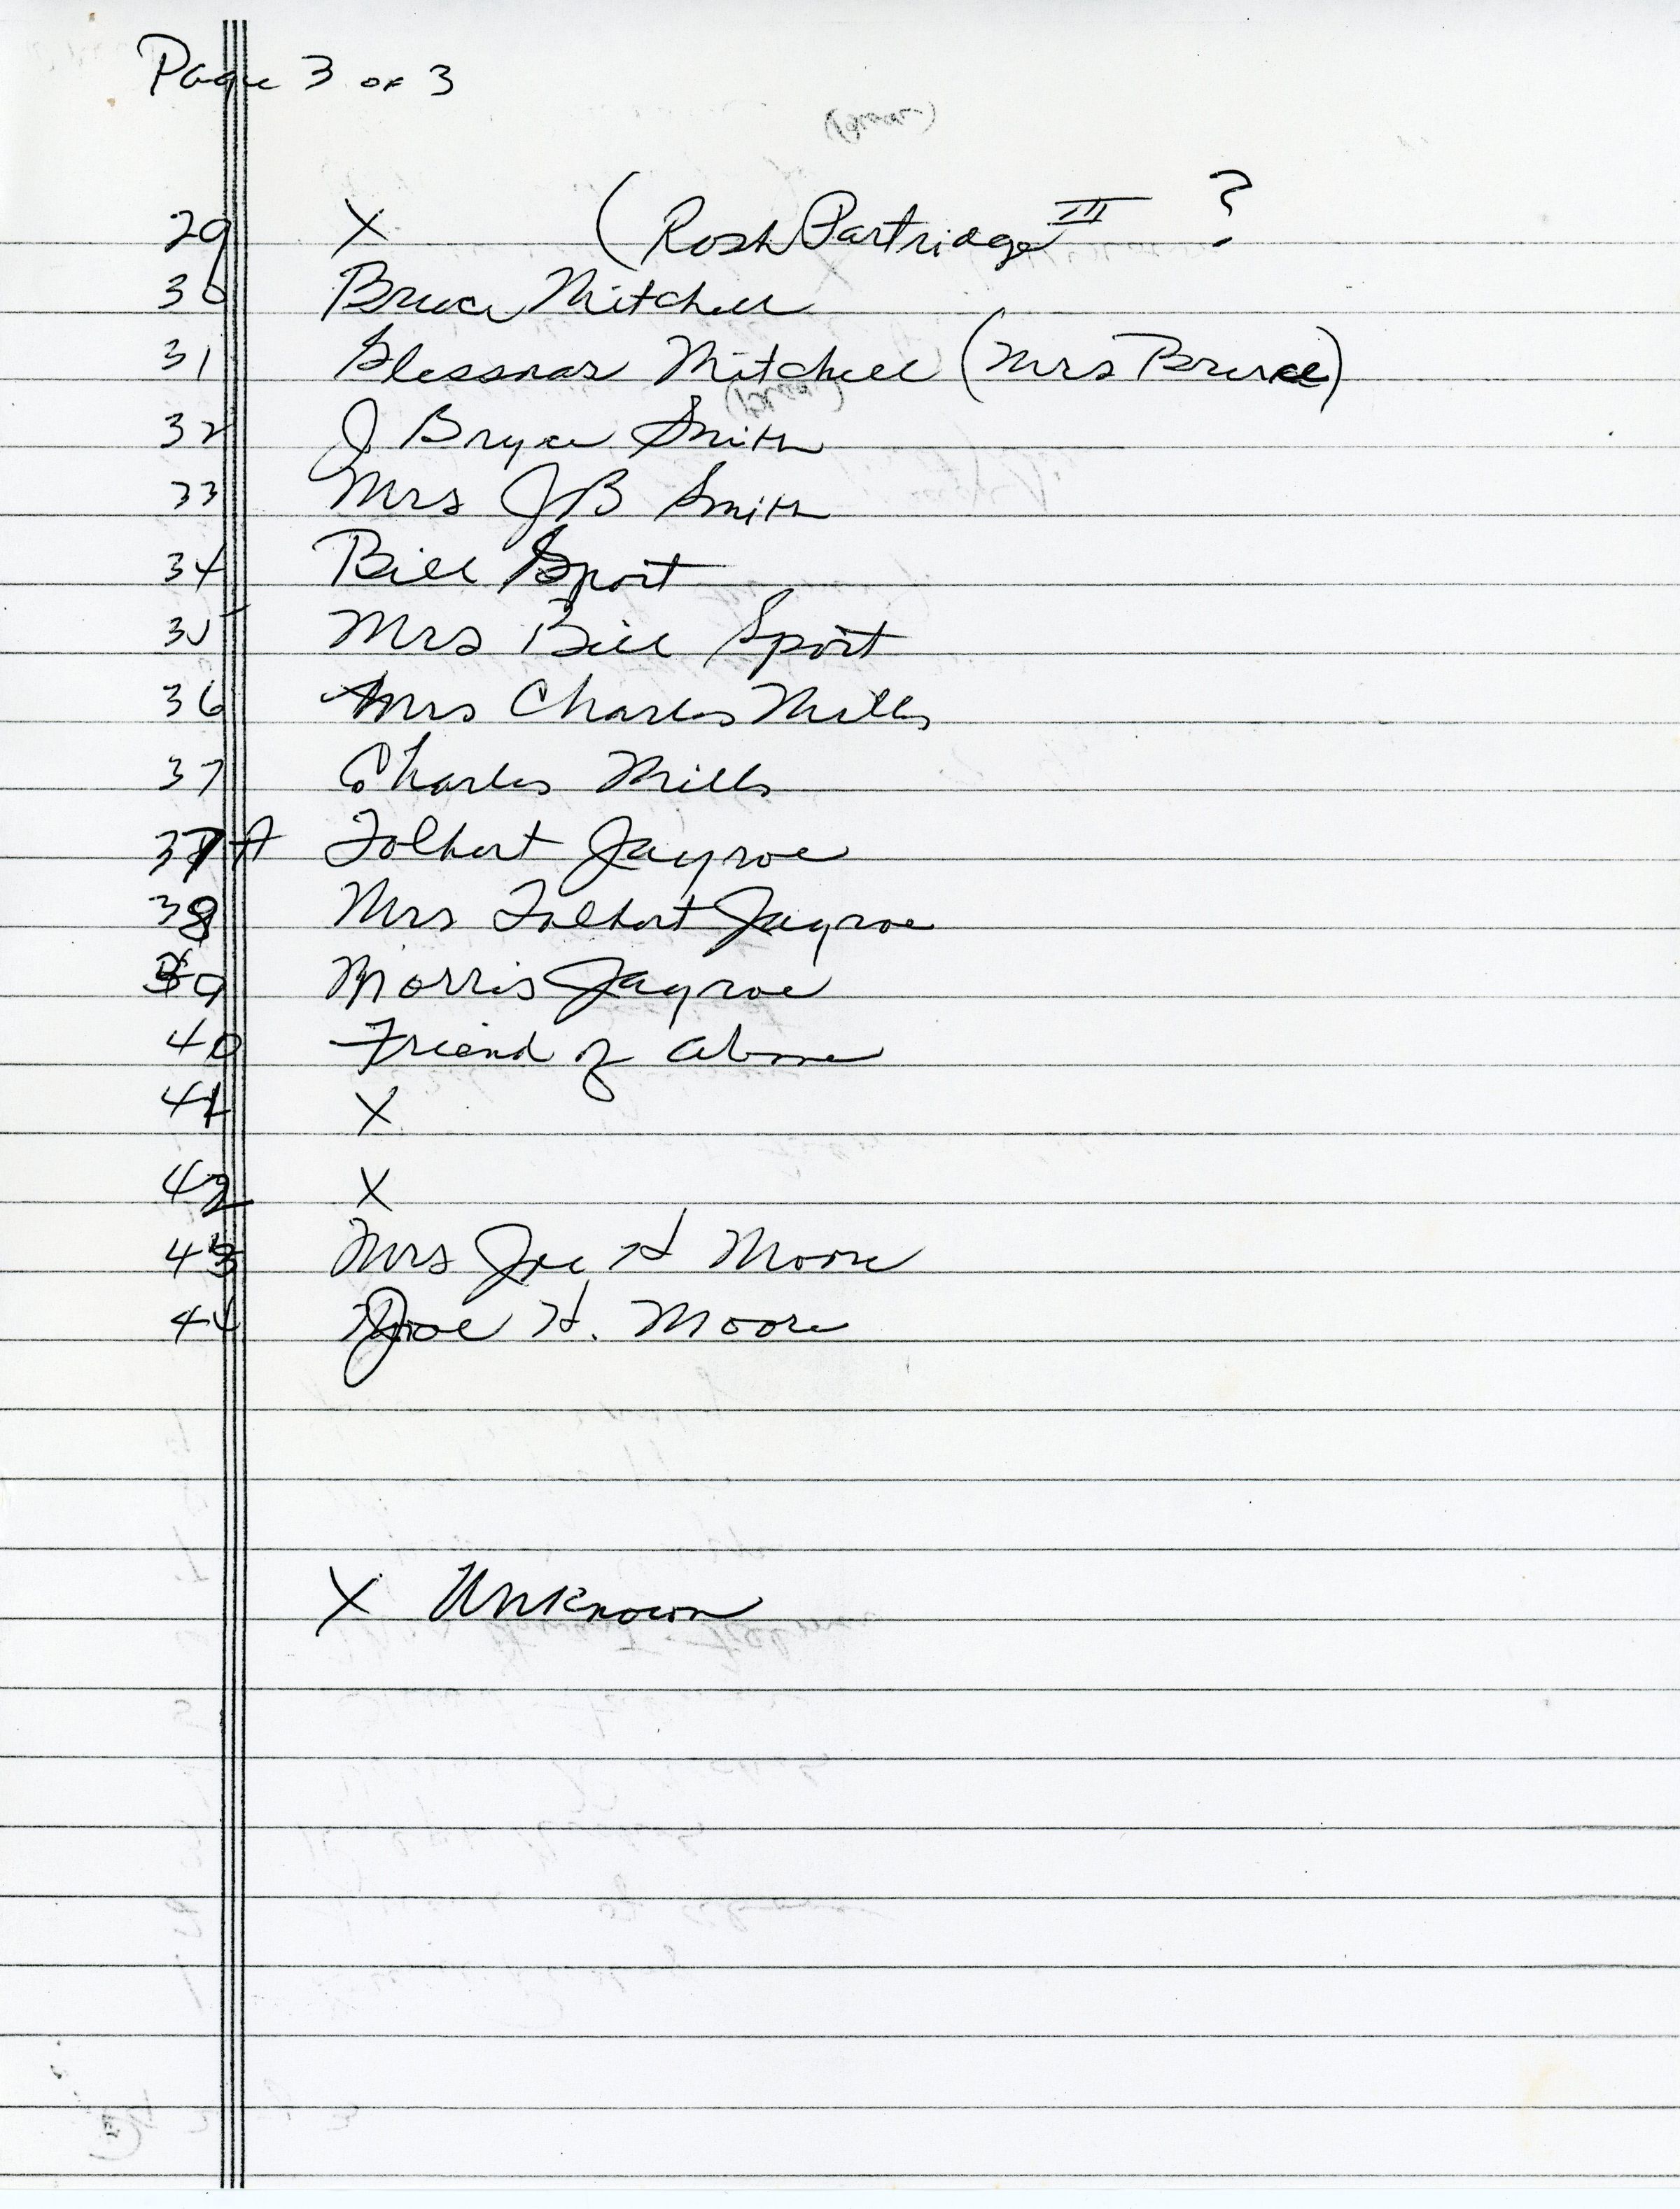 Page 3 of 3
29 X (Rosh Partridge III ?
30 Bruce Mitchell
31 Mitchell (Mrs Bruce)
32 J Bryce Smith
33 Mrs JB Smith
34 Bill Sport
35 Mrs Bill Sport
36 Mrs Charles Mills
37 Charles Mills
37A Tolbert Jayroe
38 Mrs Tolbert Jayroe
39 Morris Jayroe
40 Friend of above
41 X
42 X
43 Mrs Joe H Moore
44 Joe H. Moore
X Unknown